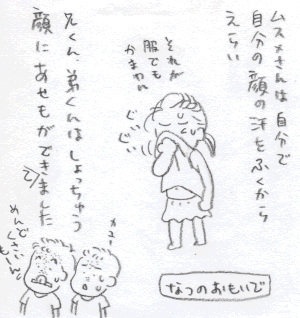 ムスメさんは自分で
自分の顔の汗をふくから
えらい
それが
服でも
かまわん
ぐいぐい
兄くん、弟くんはしょっちゅう
顔にあせもができました
カユー
めんどくさいんだもーん
なつのおもいで